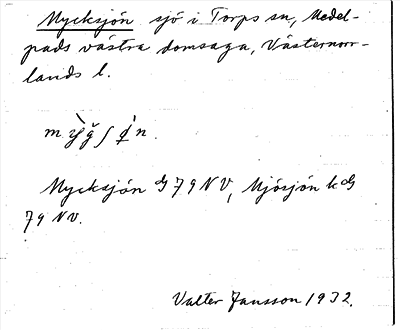 Mycksjön sjö i Torps sn, Medel-
pads västra domsaga, Västernorr-
lands l.
Mycksjön G 79 NV, Mjösjön k G
79 NV.
Valter Jansson 1932.